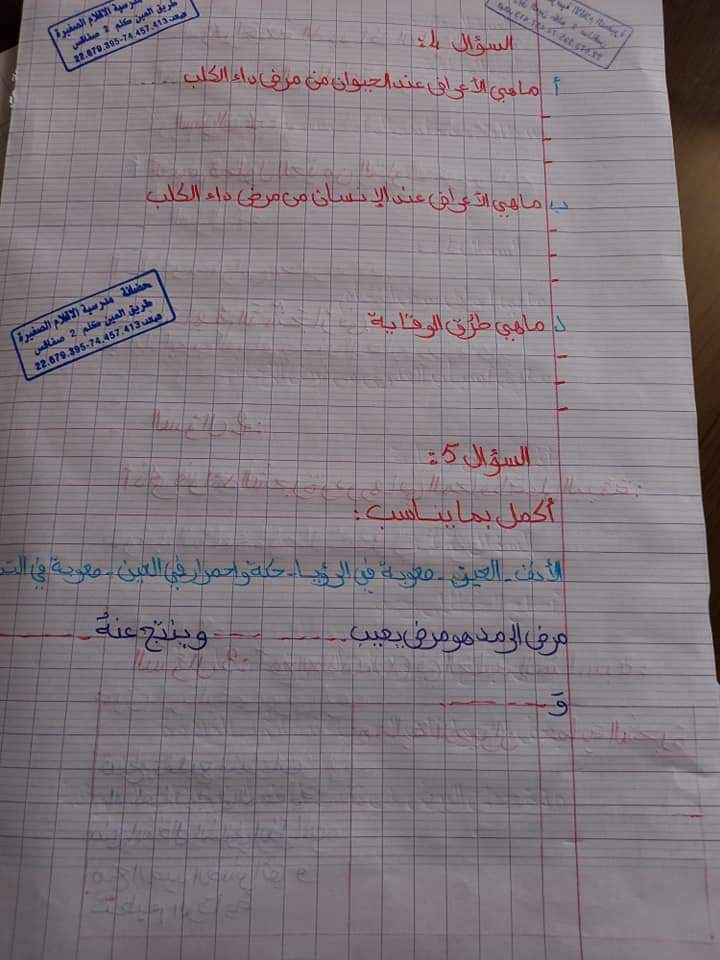 مدرسية الاقلام الصغيرة
طريق العين كلم 2 صفاقس
22.679.395-74.457.413
السؤال 4:
أ ماهي الأعراض عند الحيوان من مرض داء الكلب ...
-
-
ب ماهي الأعراض عند الإنسان من مرض داء الكلب
-
-
حضانة مدرسية الاقلام الصغيرة
طريق العين كلم 2 صفاقس
الهاتف 22.679.395-74.457.413
د ماهي طرق الوقاية
-
-
-
السؤال 5:
أكمل بما يناسب:
الأنف - العين - صعوبة في الرؤيا - حكة واحمرار في العين - صعوبة في
مرض الرمد هو مرض يصيب ------ وينتج عنهُ ------
وَ ------